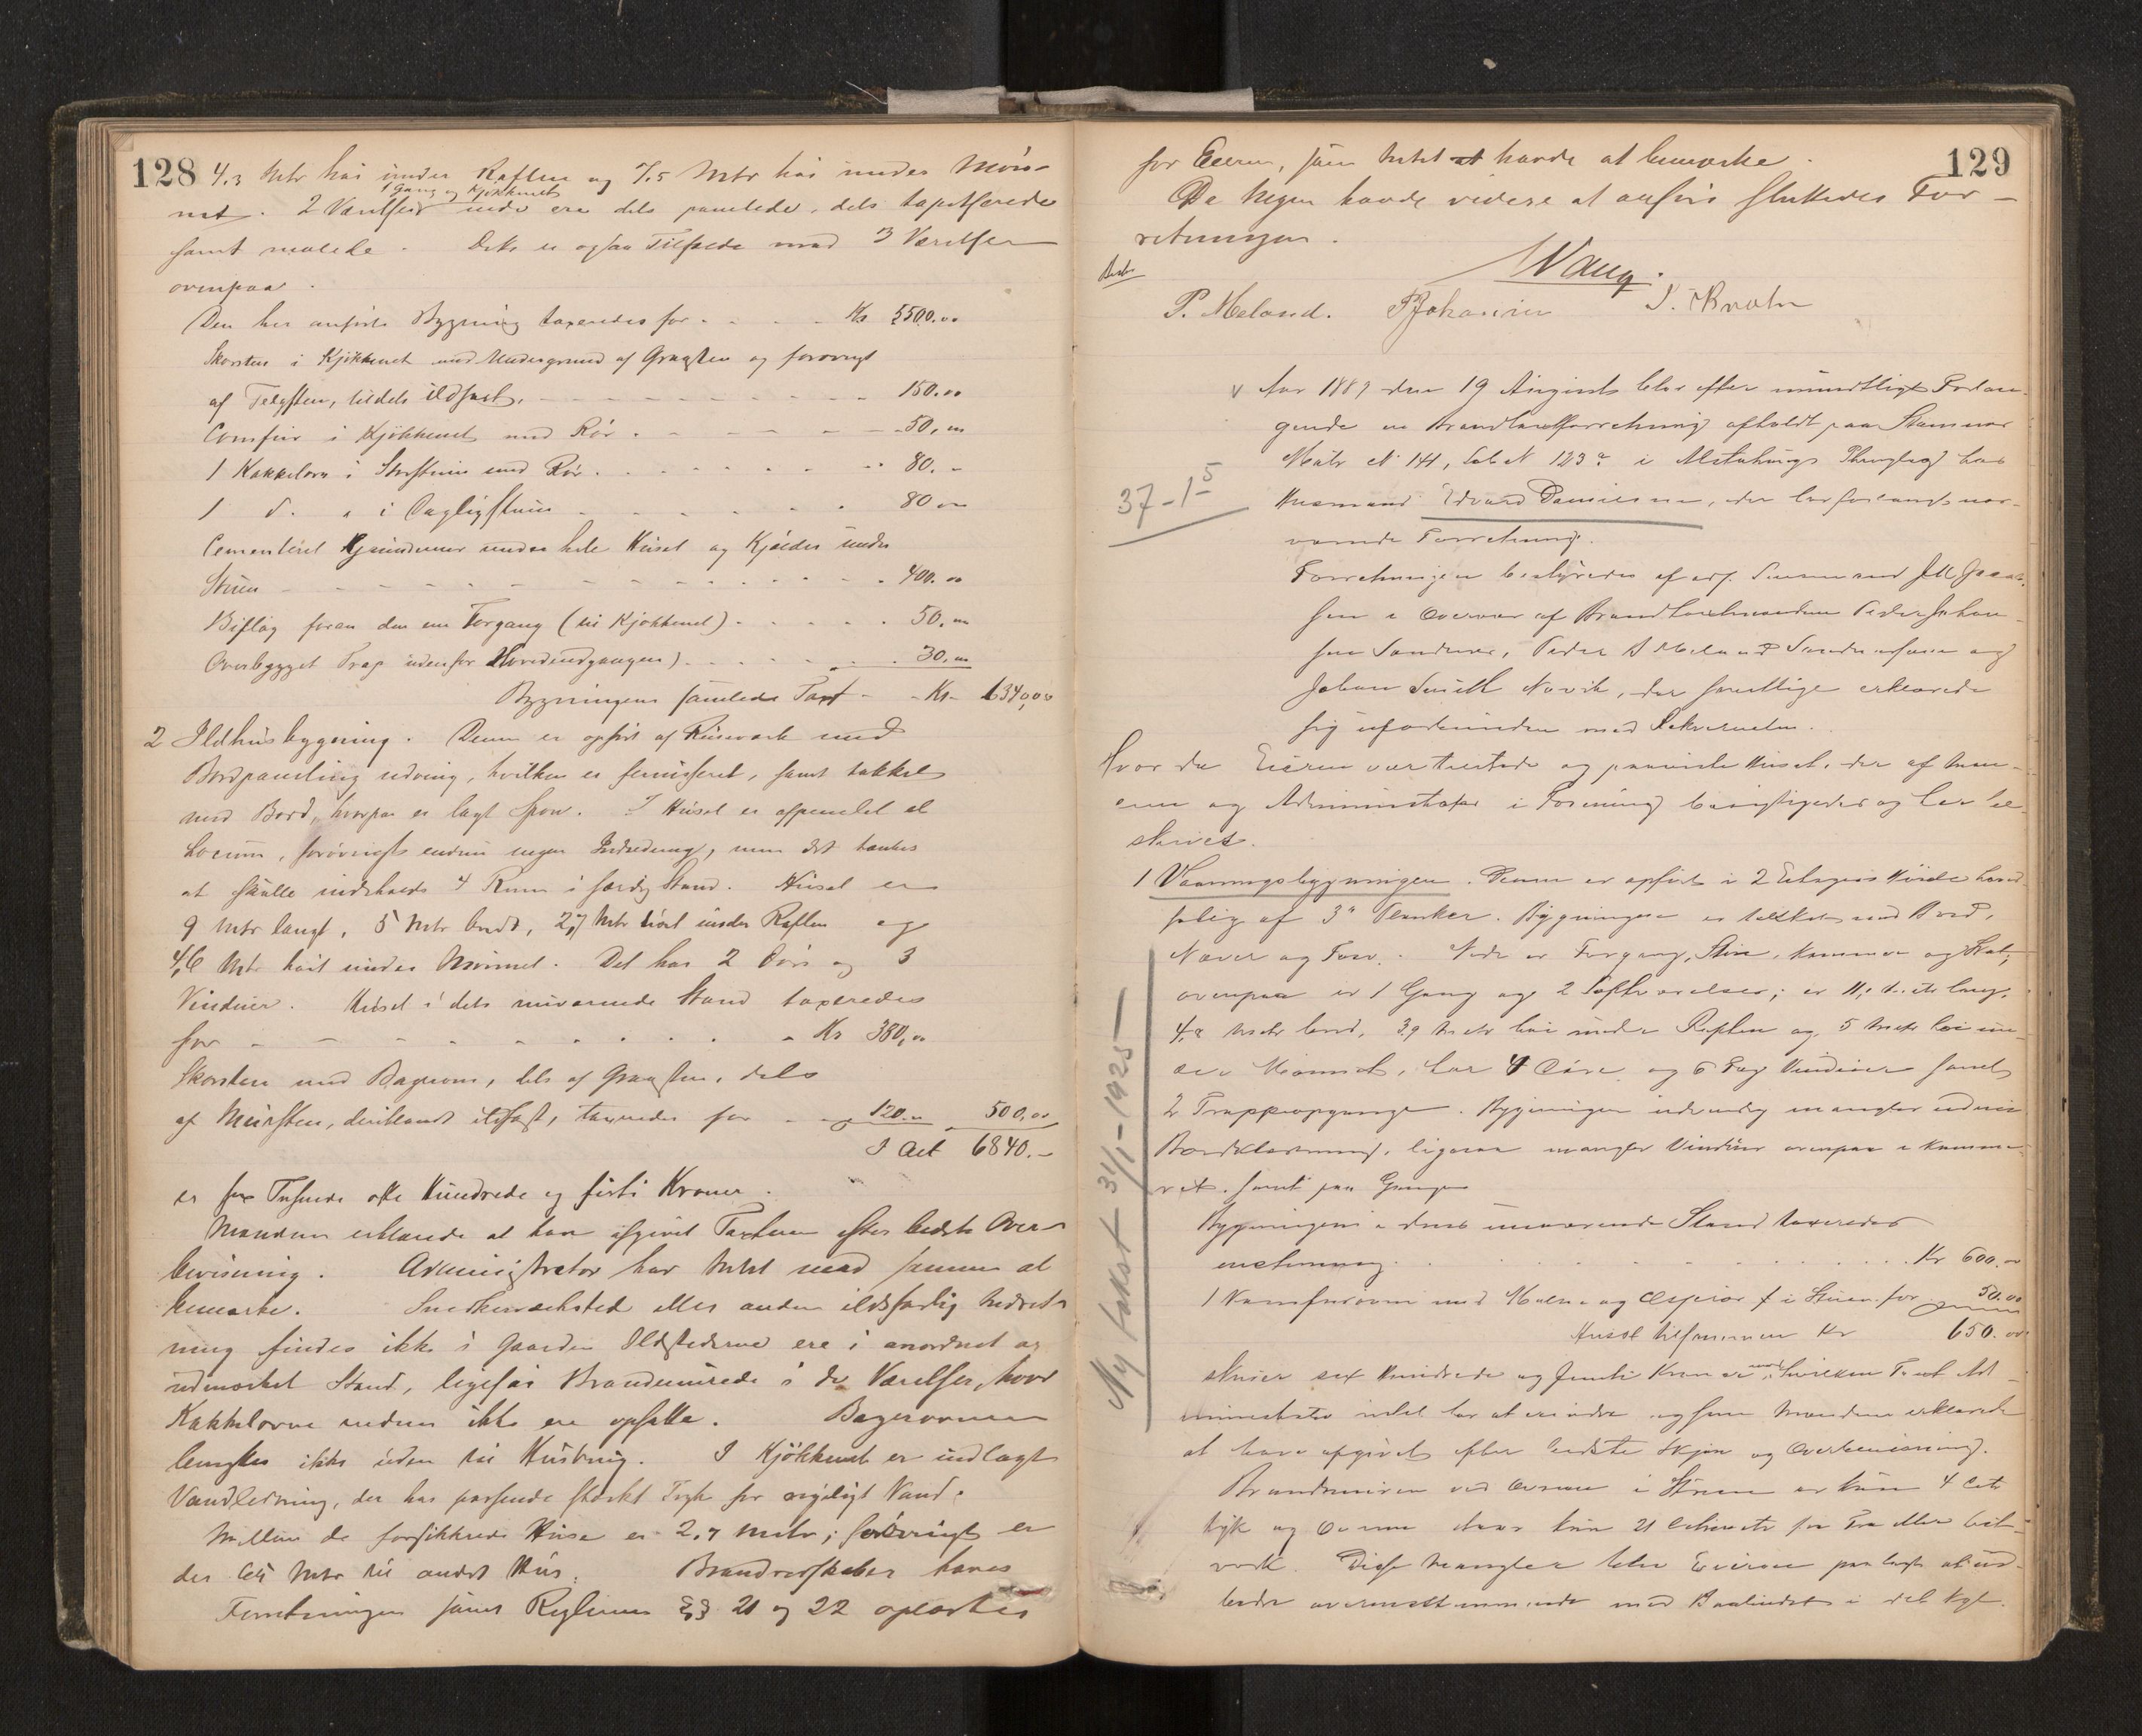 128
4,3 Mtr høi under Raften og 7,5 Mtr høi under Møn-
1 Gang og Kjøkkenet
net. 2 Værelser nede ere dels panelede, dels tapetserede
samt malede. Dets er ogsaa Tilfælde med 3 Værelser
ovenpaa.
Den her anførte Bygning taxeredes for - - - - Kr 5500.00
Skorsten i Kjøkkenet med Undergrund af Graasten og forøvrigt
af Teglsten, tildels ildfast. - - - 150.00
Comfur i Kjøkkenet med Rør. - - - 50,00
1 Kakkelovn i Storstuen med Rør. - - - 80.-
1 d. " i Dagligstuen - - - 80 00
Cementeret Grundmur under hele Huset og Kjælder under
Stuen - - - 400.00
Bislag foran den ene Forgang (til Kjøkkenet) - - - 50.00
Overbygget Trap udenfor Hovedindgangen) - - - 30,00
Bygningens samlede Taxt - - Kr - 6340,00
2 Ildhusbygning. Denne er opført af Reisværk med
Bordpaneling udvendig, hvilken er fernisseret, samt takket
med Bord, hvorpaa er lagt Spon. I Huset er afpanelet et
Locum, forøvrigt endnu ingen Indredning, men det tænkes
at skulle indeholde 4 Rum i færdig Stand. Huset er
9 Mtr langt, 5 Mtr bredt, 2,7 Mtr høit under Raften og
4,6 Mtr høit under Mønnet. Det har 2 Døre og 3
Vinduer. Huset i dets nuværende Stand taxeredes
for - - - Kr 380,00
Skorsten med Bagerovn, dels af Graasten, dels
af Mursten, deriblandt ildfast, taxeredes for - - 120.00 500,00
I Alt 6840.-
er Tusinde otte Hundrede og firti Kroner.
Mændene erklærede at have afgivet Taxten efter bedste Over-
bevisning. Administrator har Intet imod samme at
bemærke. Snedkerværksted eller anden ildsfarlig Indret-
ning findes ikke i Gaarden Ildstederne ere i anordnet og
udmærket Stand, ligesaa Brandmurede i de Værelser, hvor
Kakkelovne endnu ikke ere opsatte. Bagerovnen
benyttes ikke uden til Husbrug. I Kjøkkenet er indlagt
Vandledning, der har passende stærkt Tryk for rigeligt Vand.
Mellem de forsikkrede Huse er 2,7 Meter; forøvrigt er
der Mtr til andet Hus. Brandredskaber haves
Forretningen samt Reglerne §§ 21 og 22 oplæstes
129
for Eieren, som Intet havde at bemærke.
Da Ingen havde videre at anføre sluttedes For-
retningen.
Wang.
P. Meland. P Johansen J.
Aar 1889 den 19 August blev efter mundtligt Forlan-
gende en Brandtaxtforretning afholdt paa Stamnes
Matr No 141, Løb No 123 a i Alstahaugs Thinglag hos
Husmand Edvard Danielsen, der har forlangt nær-
37-1-5
værende Forretning.
Forretningen bestyredes af
sen i Overvær af Brandtaxtmændene Peder Johan-
sen Sandnes, Peder Meland Sandnesøen og
Johan Novik, der samtlige erklærede
sig uforbindere med Rekvirenten.
Hvor da Eieren var tilstede og paaviste Huset, der af Mæn-
ene og Administrator i Forening besigtigedes og her be-
skrives.
1 Vaaningsbygningen. Denne er opført i 2 Etagers Høide
af 3" Planker. Bygningen er takket med Bord,
Næver og Torv. Nede er Forgang, Stue, Kammer og
ovenpaa er 1 Gang og 2 Loftsværelser; er Meter lang,
4,2 Meter bred, 3,9 Meter høi under Raften og 5 Meter høi un-
der Mønnet, har 4 Døre og 6 Fag Vinduer samt
2 Trappeopgange. Bygningen udvendig mangler endnu
Bordklædning, ligesaa mangler Vinduer ovenpaa i Kamme-
ret samt paa Gangen
Bygningen i dens nuværende Stand taxeredes
- - - Kr 600.00
1 Komfurovn med og i Stuen for 50.00
Huset tilsammen Kr 650.00
skriver sex Hundrede og femti Kroner, mod hvilken Taxt Ad-
ministrator intet har at erindre og som Mændene erklærede
at have afgivet efter bedste Skjøn og Overbevisning.
Brandmuren ved Ovnen i Stuen er kun 4
tyk og Ovnen staar kun 21 Centimeter fra Træ eller
værk. Disse Mangler blev Eieren paalagt at ud-
bedre overensstemmende med Paabudet i det kgl.
Ny takst 31/1-1925